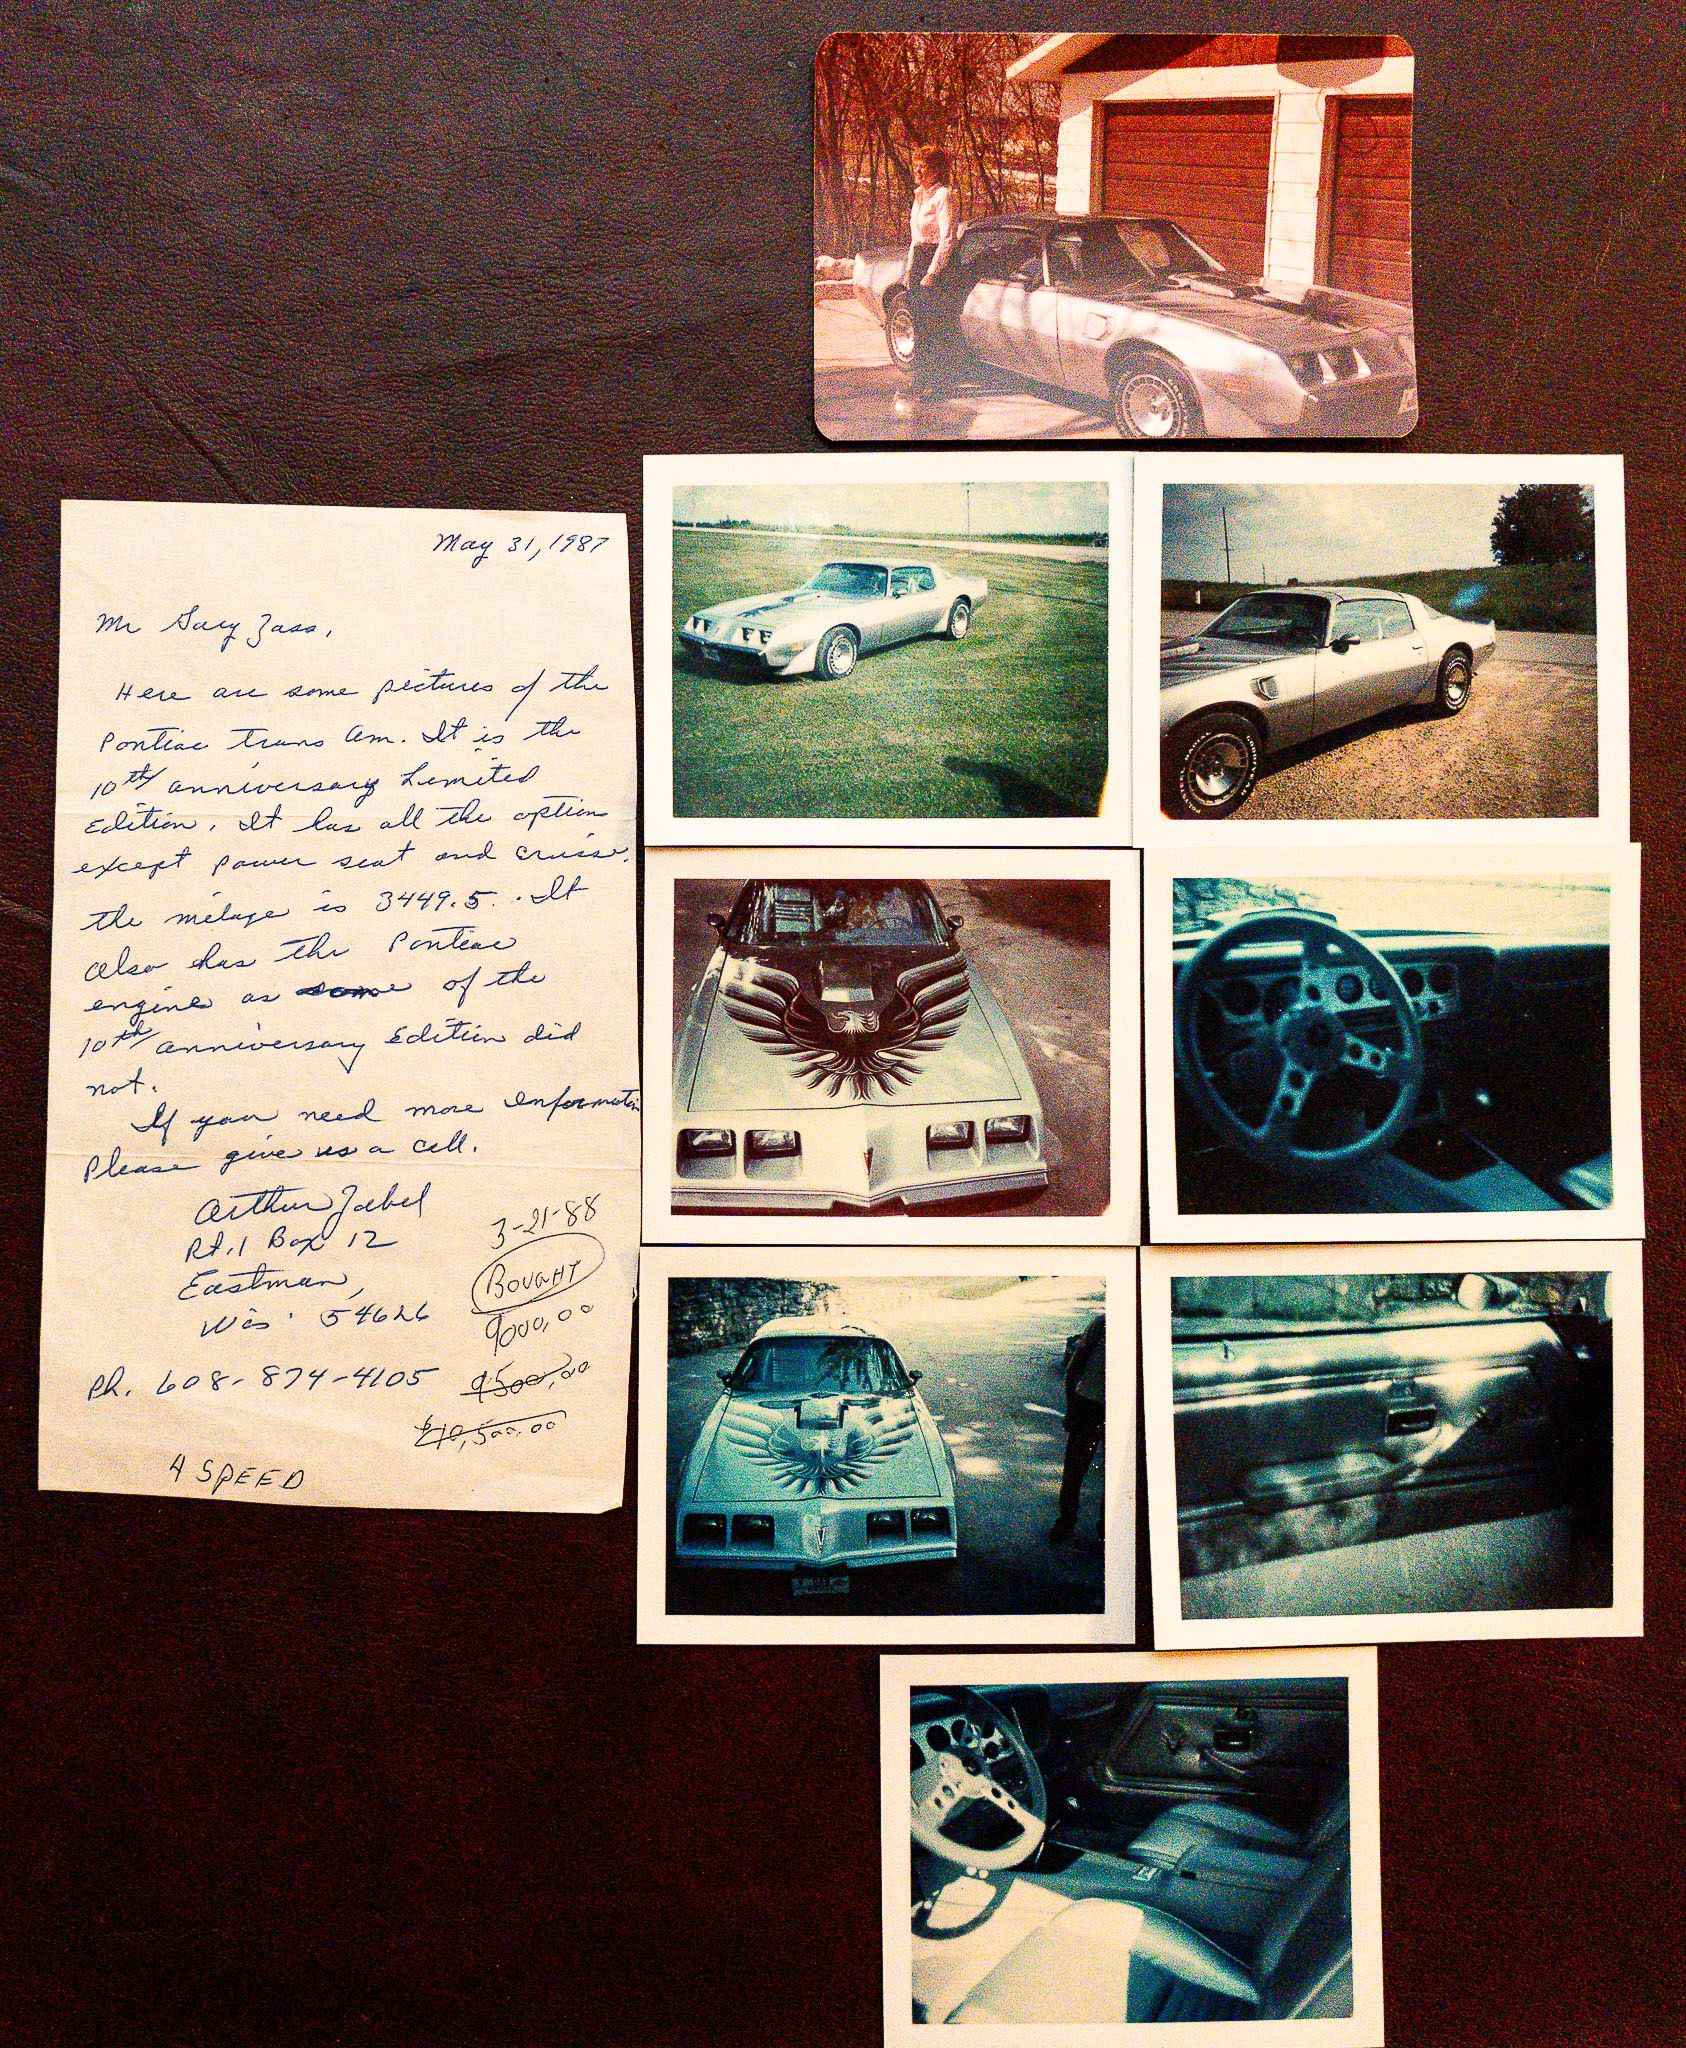 May 31, 1987
Mr Gary Zass,
Here are some pictures of the
Pontiac trans am. It is the
10th anniversary Limited
Edition. It has all the options
except power seat and cruise.
the milage is 3449.5. It
also has the Pontiac
engine as some of the
10th anniversary Edition did
not.
If you need more Information
Please give us a call.
Arthur Zabel
Rt.1 Box 12
Eastman,
Wis. 54626
Ph. 608-874-4105
3-21-88
BOUGHT
9000.00
9500.00
$10,500.00
4 SPEED